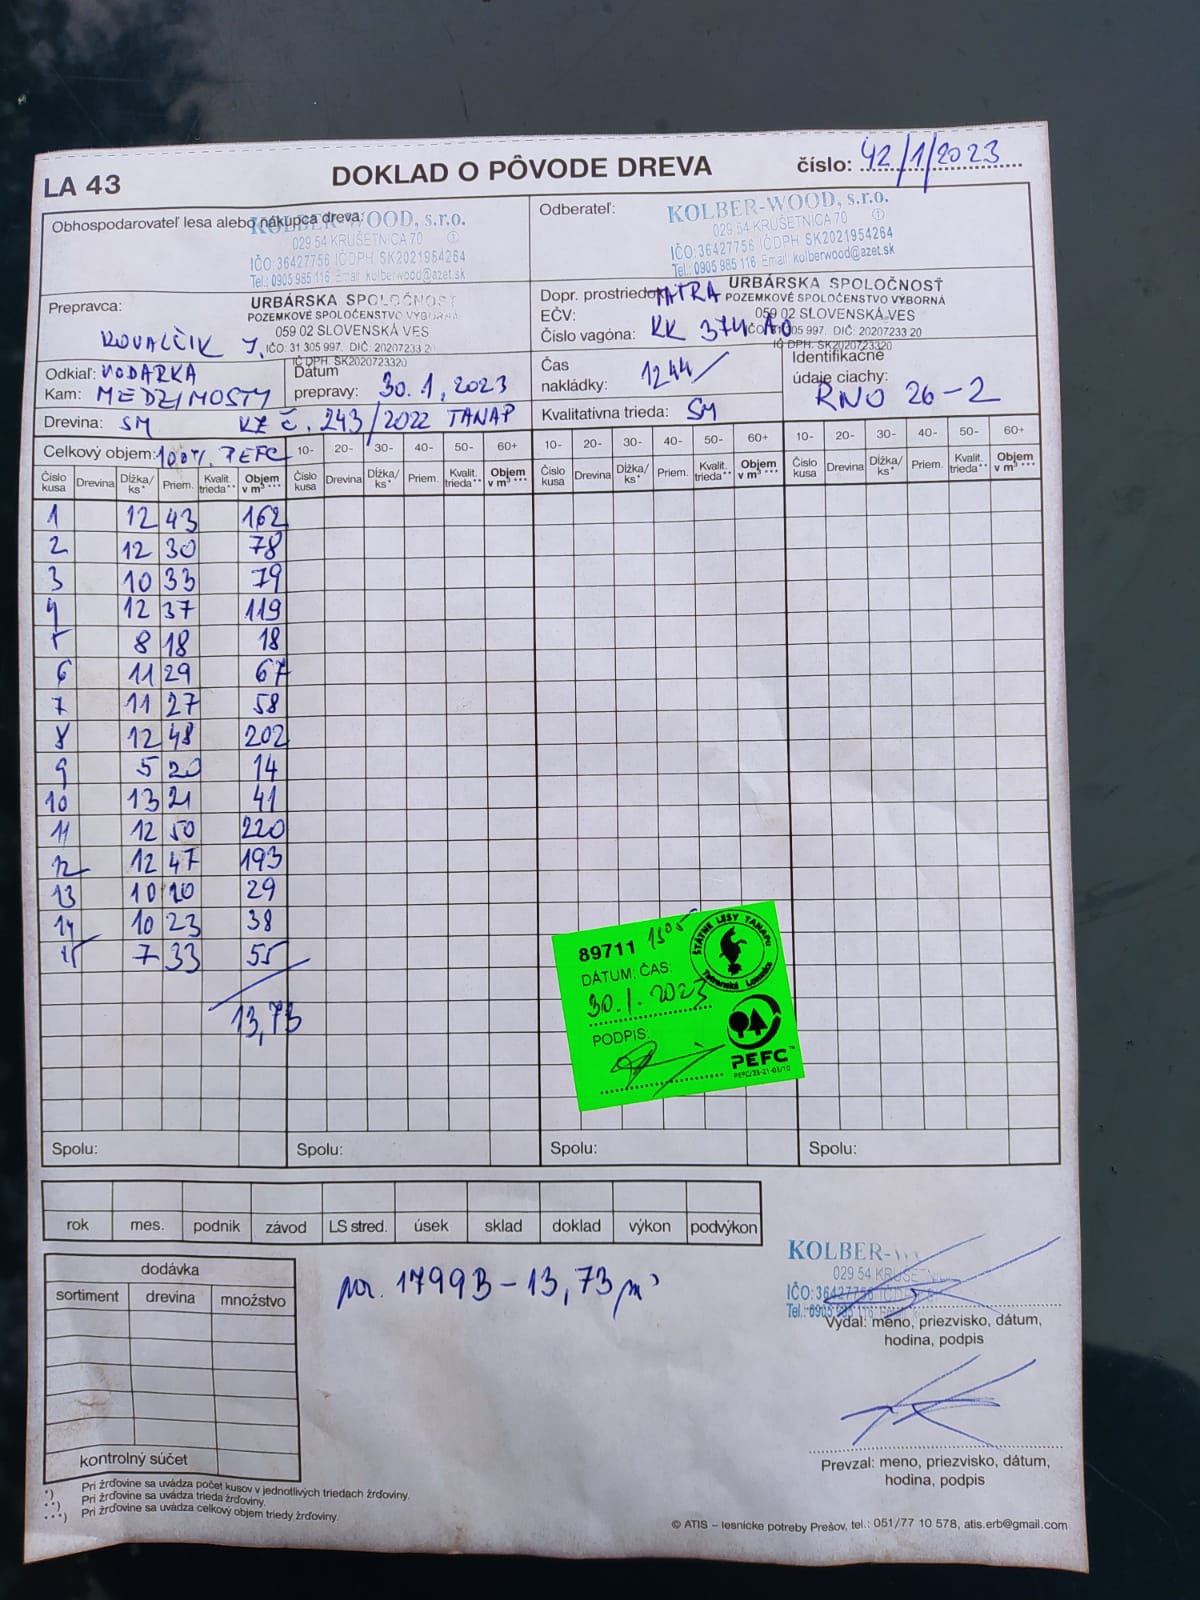 LA 43
DOKLAD O PÔVODE DREVA
číslo: 42/1/2023
Obhospodarovateľ lesa alebo nákupca dreva:
KOLBER-WOOD, s.r.o.
029 54 KRUŠETNICA 70 ①
IČO:36427756 IČDPH SK2021954264
Tel.: 0905 985 116 Email: kolberwood@azet.sk
Odberateľ:
KOLBER-WOOD, s.r.o.
029 54 KRUŠETNICA 70 ①
IČO:36427756 IČDPH SK2021954264
Tel.: 0905 985 116 Email: kolberwood@azet.sk
Prepravca:
URBÁRSKA SPOLOČNOSŤ
POZEMKOVÉ SPOLOČENSTVO VÝBORNÁ
059 02 SLOVENSKÁ VES
IČO: 31 305 997, DIČ: 20207233 20
IČ DPH. SK2020723320
KOVALČIK J.
Dopr. prostriedok: TATRA
EČV:
Číslo vagóna: KK 374 AO
URBÁRSKA SPOLOČNOSŤ
POZEMKOVÉ SPOLOČENSTVO VÝBORNÁ
059 02 SLOVENSKÁ VES
IČO 305 997, DIČ: 20207233 20
IČ DPH. SK2020723320
Odkiaľ: VODARKA
Kam: MEDZIMOSTY
Dátum
prepravy: 30.1,2023
Čas
nakládky: 1244
Identifikačné
údaje ciachy:
RNO 26-2
Drevina: SM KZ č. 243/2022 TANAP
Kvalitatívna trieda: SM
Celkový objem: 100% PEFC
10- 20- 30- 40- 50- 60+ 10- 20- 30- 40- 50- 60+ 10- 20- 30- 40- 50- 60+
Číslo kusa Drevina Dĺžka/ ks* Priem. Kvalit. trieda** Objem v m³ *** Číslo kusa Drevina Dĺžka/ ks* Priem. Kvalit. trieda** Objem v m³ *** Číslo kusa Drevina Dĺžka/ ks* Priem. Kvalit. trieda** Objem v m³ *** Číslo kusa Drevina Dĺžka/ ks* Priem. Kvalit. trieda** Objem v m³ ***
1 12 43 162
2 12 30 78
3 10 33 79
4 12 37 119
5 8 18 18
6 11 29 67
7 11 27 58
8 12 48 202
9 5 20 14
10 13 21 41
11 12 50 220
12 12 47 193
13 10 20 29
14 10 23 38
15 7 33 55
13,73
89711 1505
ŠTÁTNE LESY TANAPU
Tatranská Lomnica
DÁTUM, ČAS:
30.1.2023
PODPIS:
PEFC™
PEFC/23-21-03/10
Spolu: Spolu: Spolu: Spolu:
rok mes. podnik závod LS stred. úsek sklad doklad výkon podvýkon
dodávka
sortiment drevina množstvo
kontrolný súčet
1799B – 13,73 m³
KOLBER-W
029 54 KRUŠETN
IČO: 36427756 IČD
Tel.: 0905 985 116
Vydal: meno, priezvisko, dátum,
hodina, podpis
Prevzal: meno, priezvisko, dátum,
hodina, podpis
*) Pri žrďovine sa uvádza počet kusov v jednotlivých triedach žrďoviny.
**) Pri žrďovine sa uvádza trieda žrďoviny.
***) Pri žrďovine sa uvádza celkový objem triedy žrďoviny.
© ATIS – lesnícke potreby Prešov, tel.: 051/77 10 578, atis.erb@gmail.com